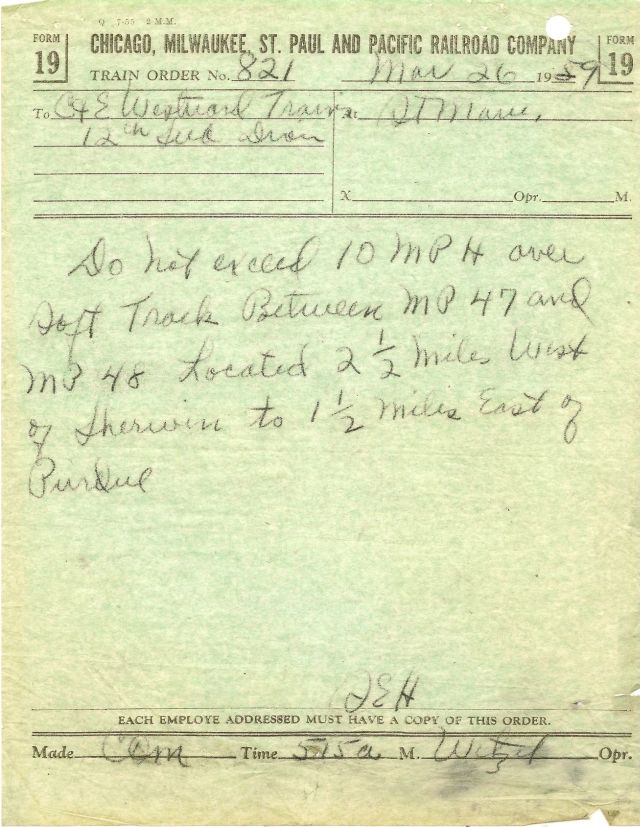 Q 7-55 2 M.M.
FORM 19
CHICAGO, MILWAUKEE, ST. PAUL AND PACIFIC RAILROAD COMPANY
FORM 19
TRAIN ORDER No. 821 Mar 26 1959
To C&E Westward Trains At St Marie,
12th Sub Divn
X Opr. M.
Do Not exceed 10 MPH over
Soft Track Between MP 47 and
MP 48 Located 2 1/2 Miles West
of Sherwin to 1 1/2 Miles East of
Purdue
JEH
EACH EMPLOYE ADDRESSED MUST HAVE A COPY OF THIS ORDER.
Made Com Time 515a M. Opr.